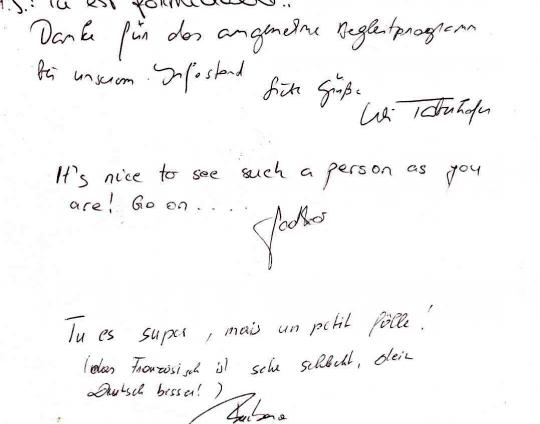 Tu est
Danke für das angenehme Begleitprogramm
bei unserem Infostand
Gute Grüße
It's nice to see such a person as you
are! Go on . . . .
Tu es super, mais un petit fölle!
(das Französisch ist sehr schlecht, dein
Deutsch besser!)
Barbara